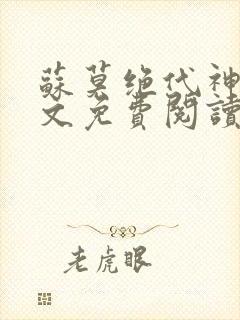 蘇莫绝代神
文免費閱讀
老虎眼